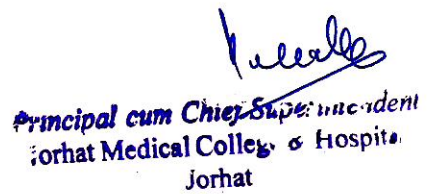 Principal cum Chief Superintendent
Jorhat Medical College & Hospital
Jorhat